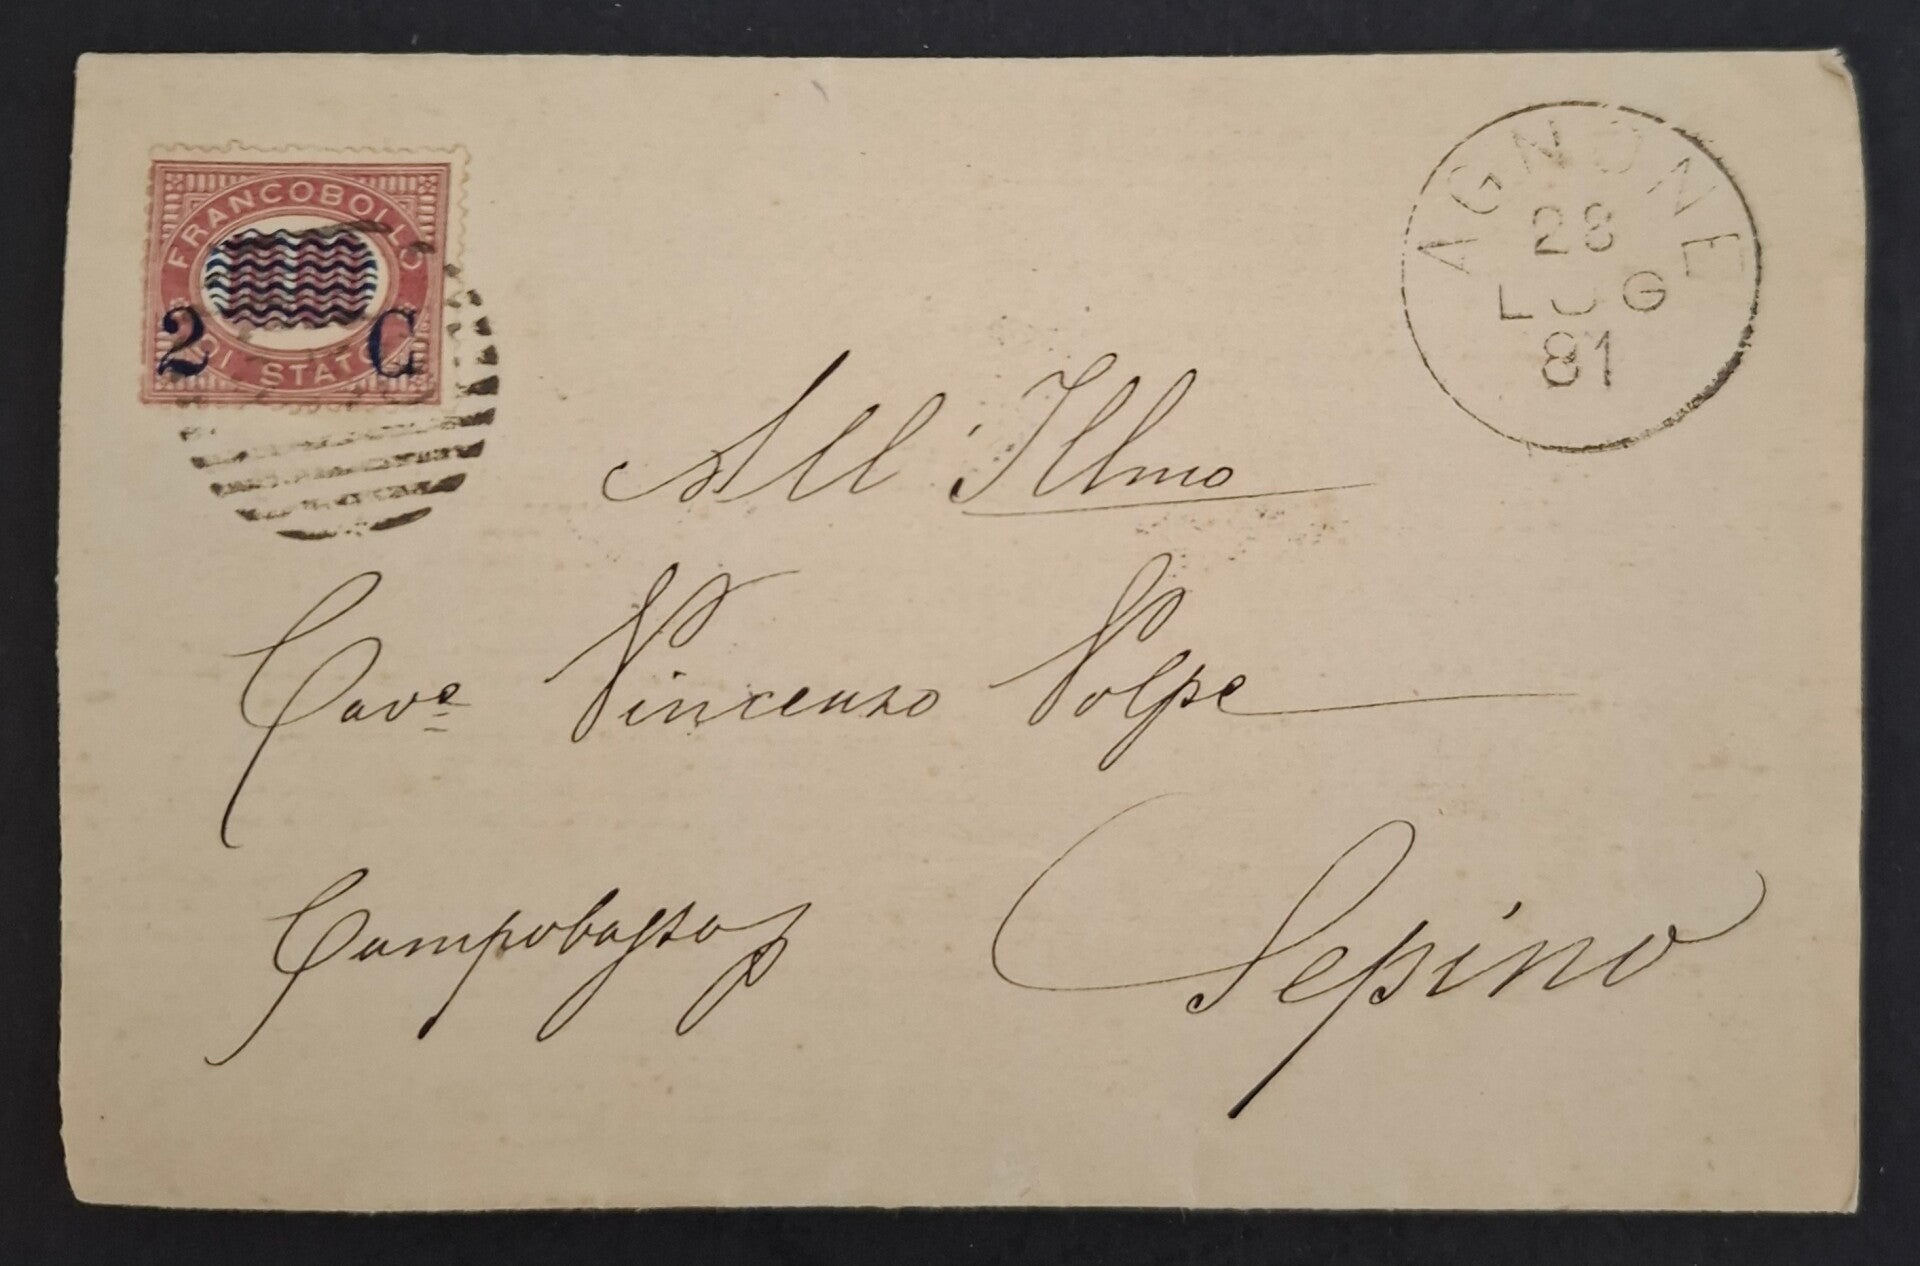 FRANCOBOLLO
2 C
DI STATO
AGNONE
28
LUG
81
All' Illmo
Cave Vincenzo Volpe
Campobasso Sepino